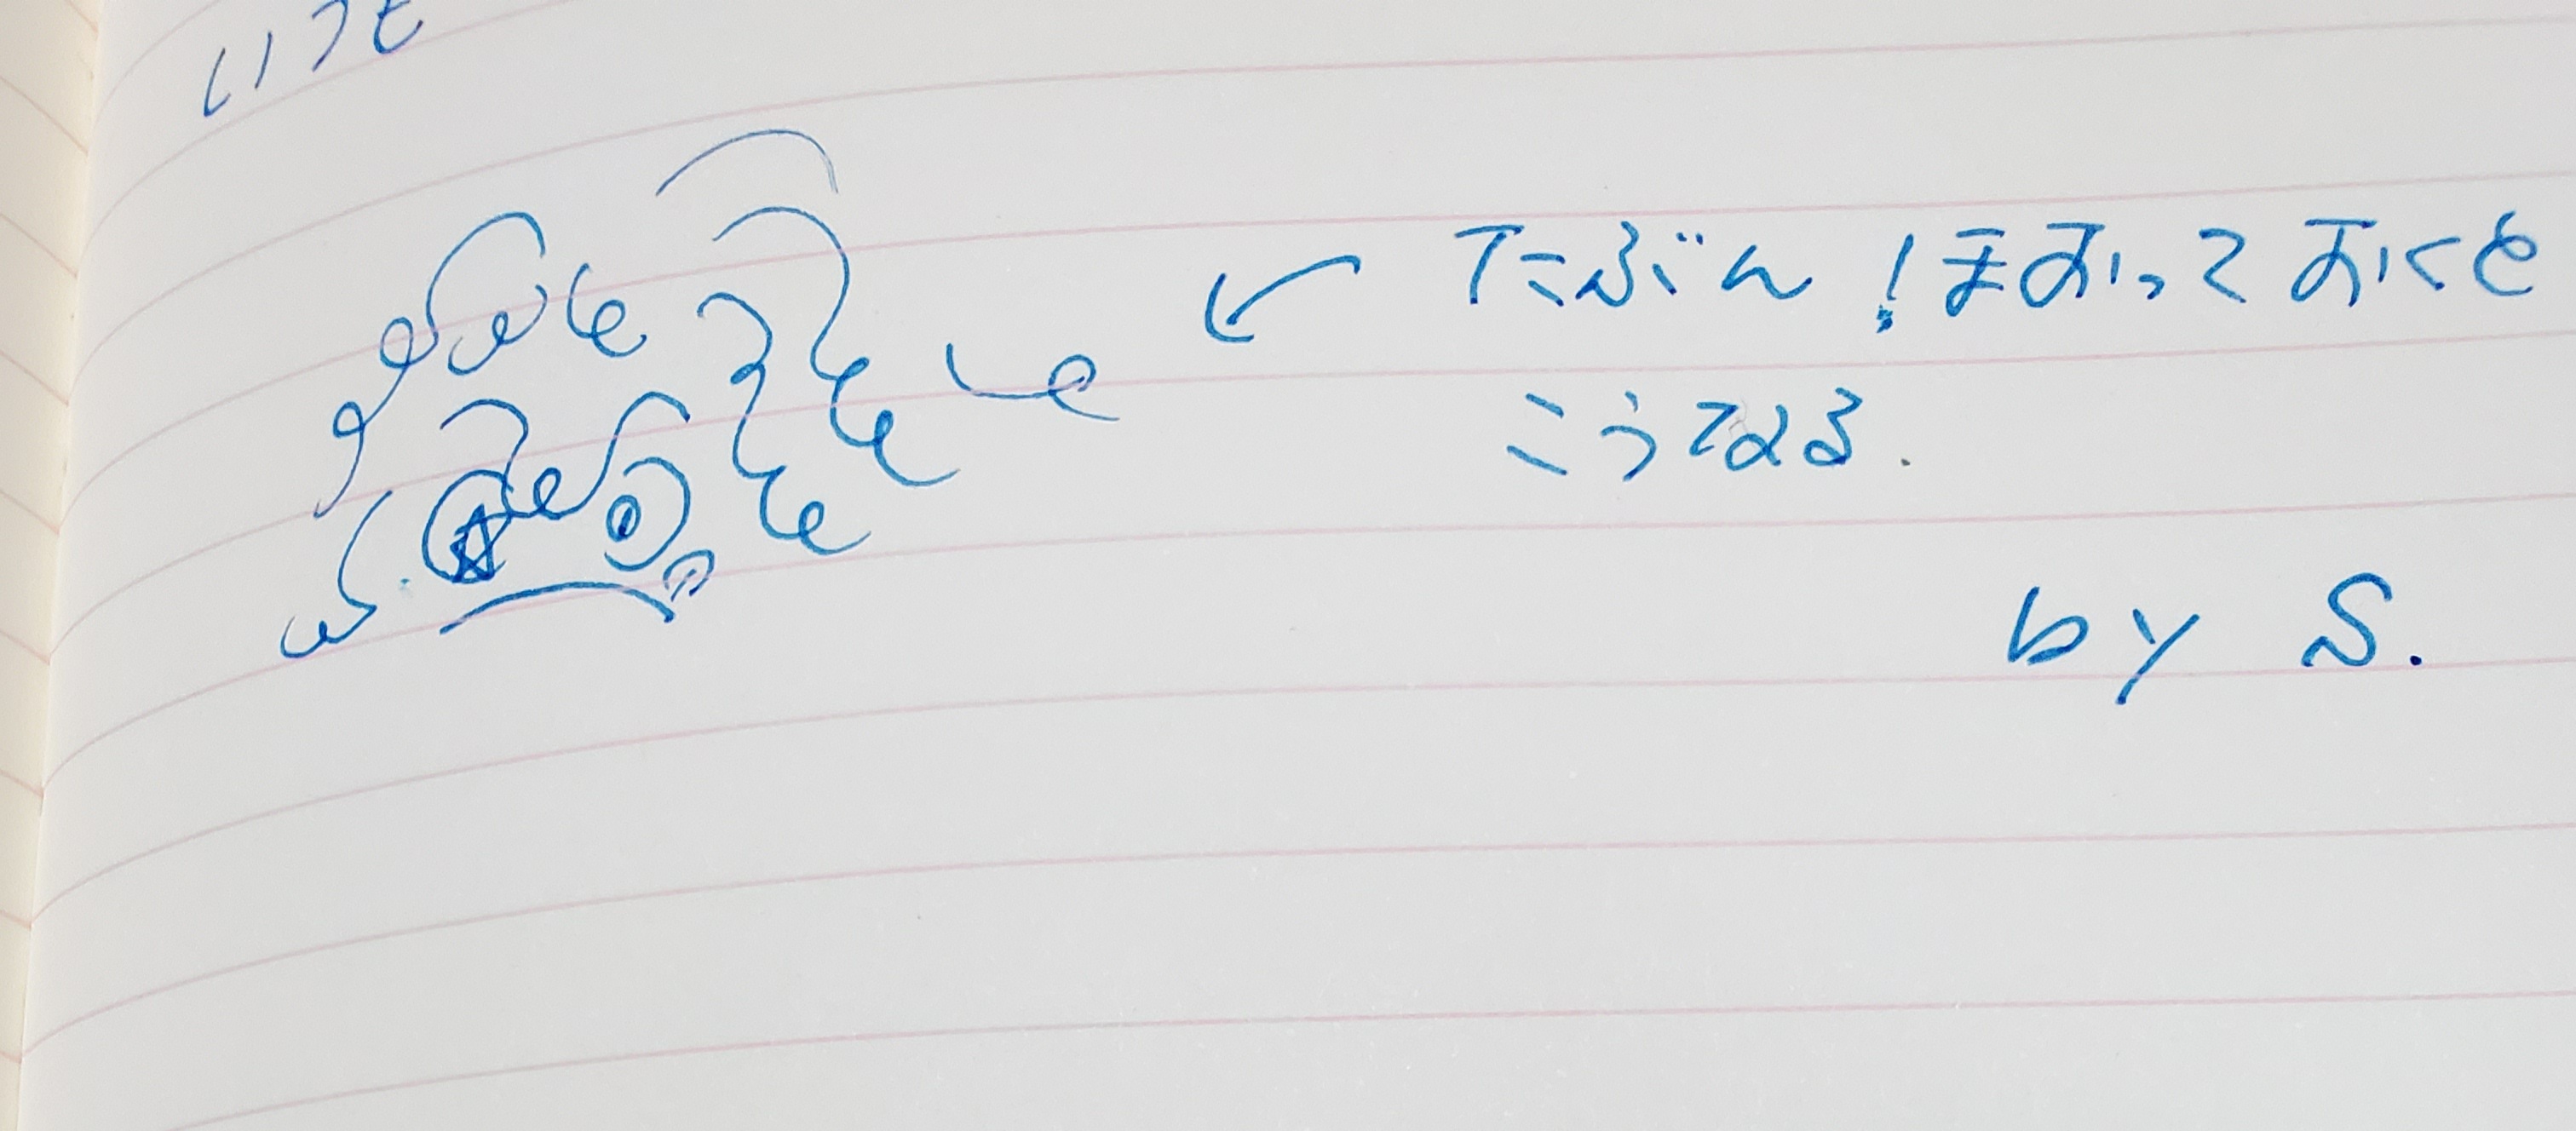 ← たぶんほおっておくと
こうなる.
by S.